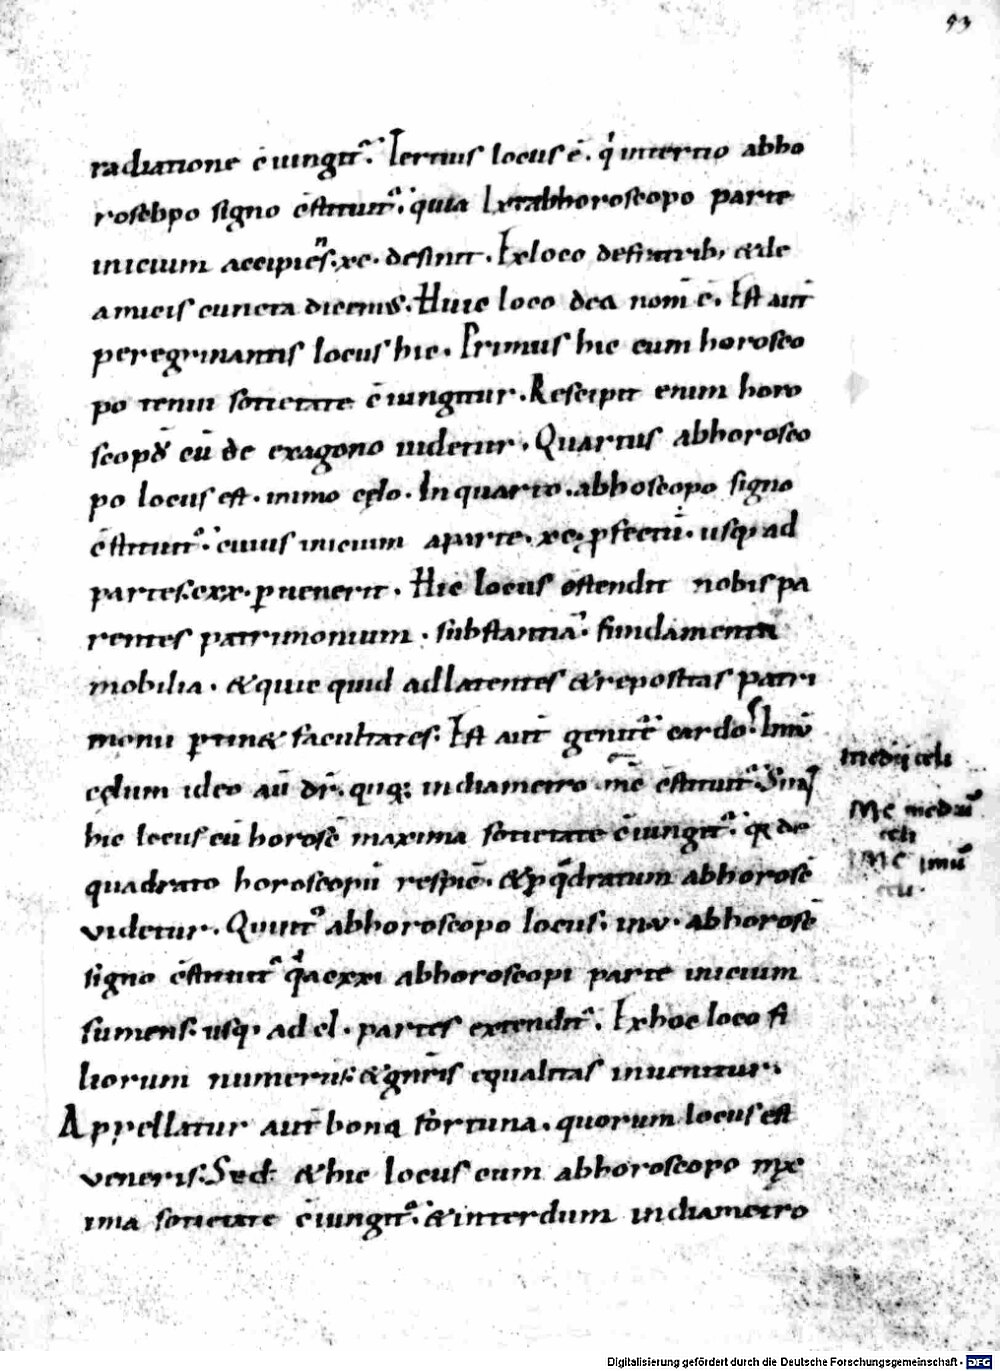 53
radiatione c̄iungit᷑. Tertius locus ē. qı̓ intertio abho
roscopo signo c̄stituit᷑. quia lx abhoroscopo parte
inicium accipiens. xc. desinit. Ex loco defratrib; & de
amicis cuncta dicemus. Huic loco dea nom̄ ē. Est aut̄
peregrinantis locus hic. Primus hic cum horosco
po tenui societate c̄iungitur. Rescipit enim horo
scopū cū de exagono uidetur. Quartus abhorosco
po locus est. inimo cęlo. In quarto. abhoscopo signo
c̄stituit᷑. cuius inicium aparte. xc. ꝓfectū. usq; ad
partes. cxx. ꝑuenerit. Hic locus ostendit nobis pa
rentes patrimonium. substantiā. fundamenta
mobilia. & quic quid ad latentes & repositas patri
monii ꝑtin& facultates. Est aut̄ geniture cardo. Imū
cęlum ideo aū dr̄. quę; indiametro m̄c c̄stituit᷑. Simil
hic locus cū horosc̄ maxima societate c̄iungit᷑. q; de
quadrato horoscopū respic̄. & ꝑ qͣdratum abhorosc̄
videtur. Quint᷒ abhoroscopo locus. in v. abhorosc̄
signo c̄stituit᷑ qͥ a cxxi abhoroscopi parte inicium
sumens. usq; ad cl. partes extendit᷑. Ex hoc loco fi
liorum numerus. & gn̄ris equalitas inuenitur.
Appellatur aut̄ bona fortuna. quorum locus est
veneris. Sed & hic locus cum abhoroscopo max
ima societate c̄iungit᷑. & interdum indiametro
medij celi
MC mediū
celi
IMC imū
celi
Digitalisierung gefördert durch die Deutsche Forschungsgemeinschaft - DFG